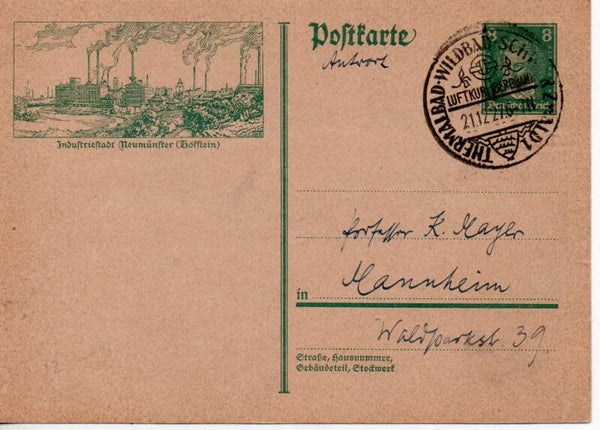 Industriestadt Neumünster (Holstein)
Postkarte
Antwort
8 8
Deutsches Reich
THERMALBAD-WILDBAD-SCHWARZWALD 1
LUFTKURORT
21.12.27
Professor K. Mayer
in Mannheim
Waldparkst. 39.
Straße, Hausnummer,
Gebäudeteil, Stockwerk